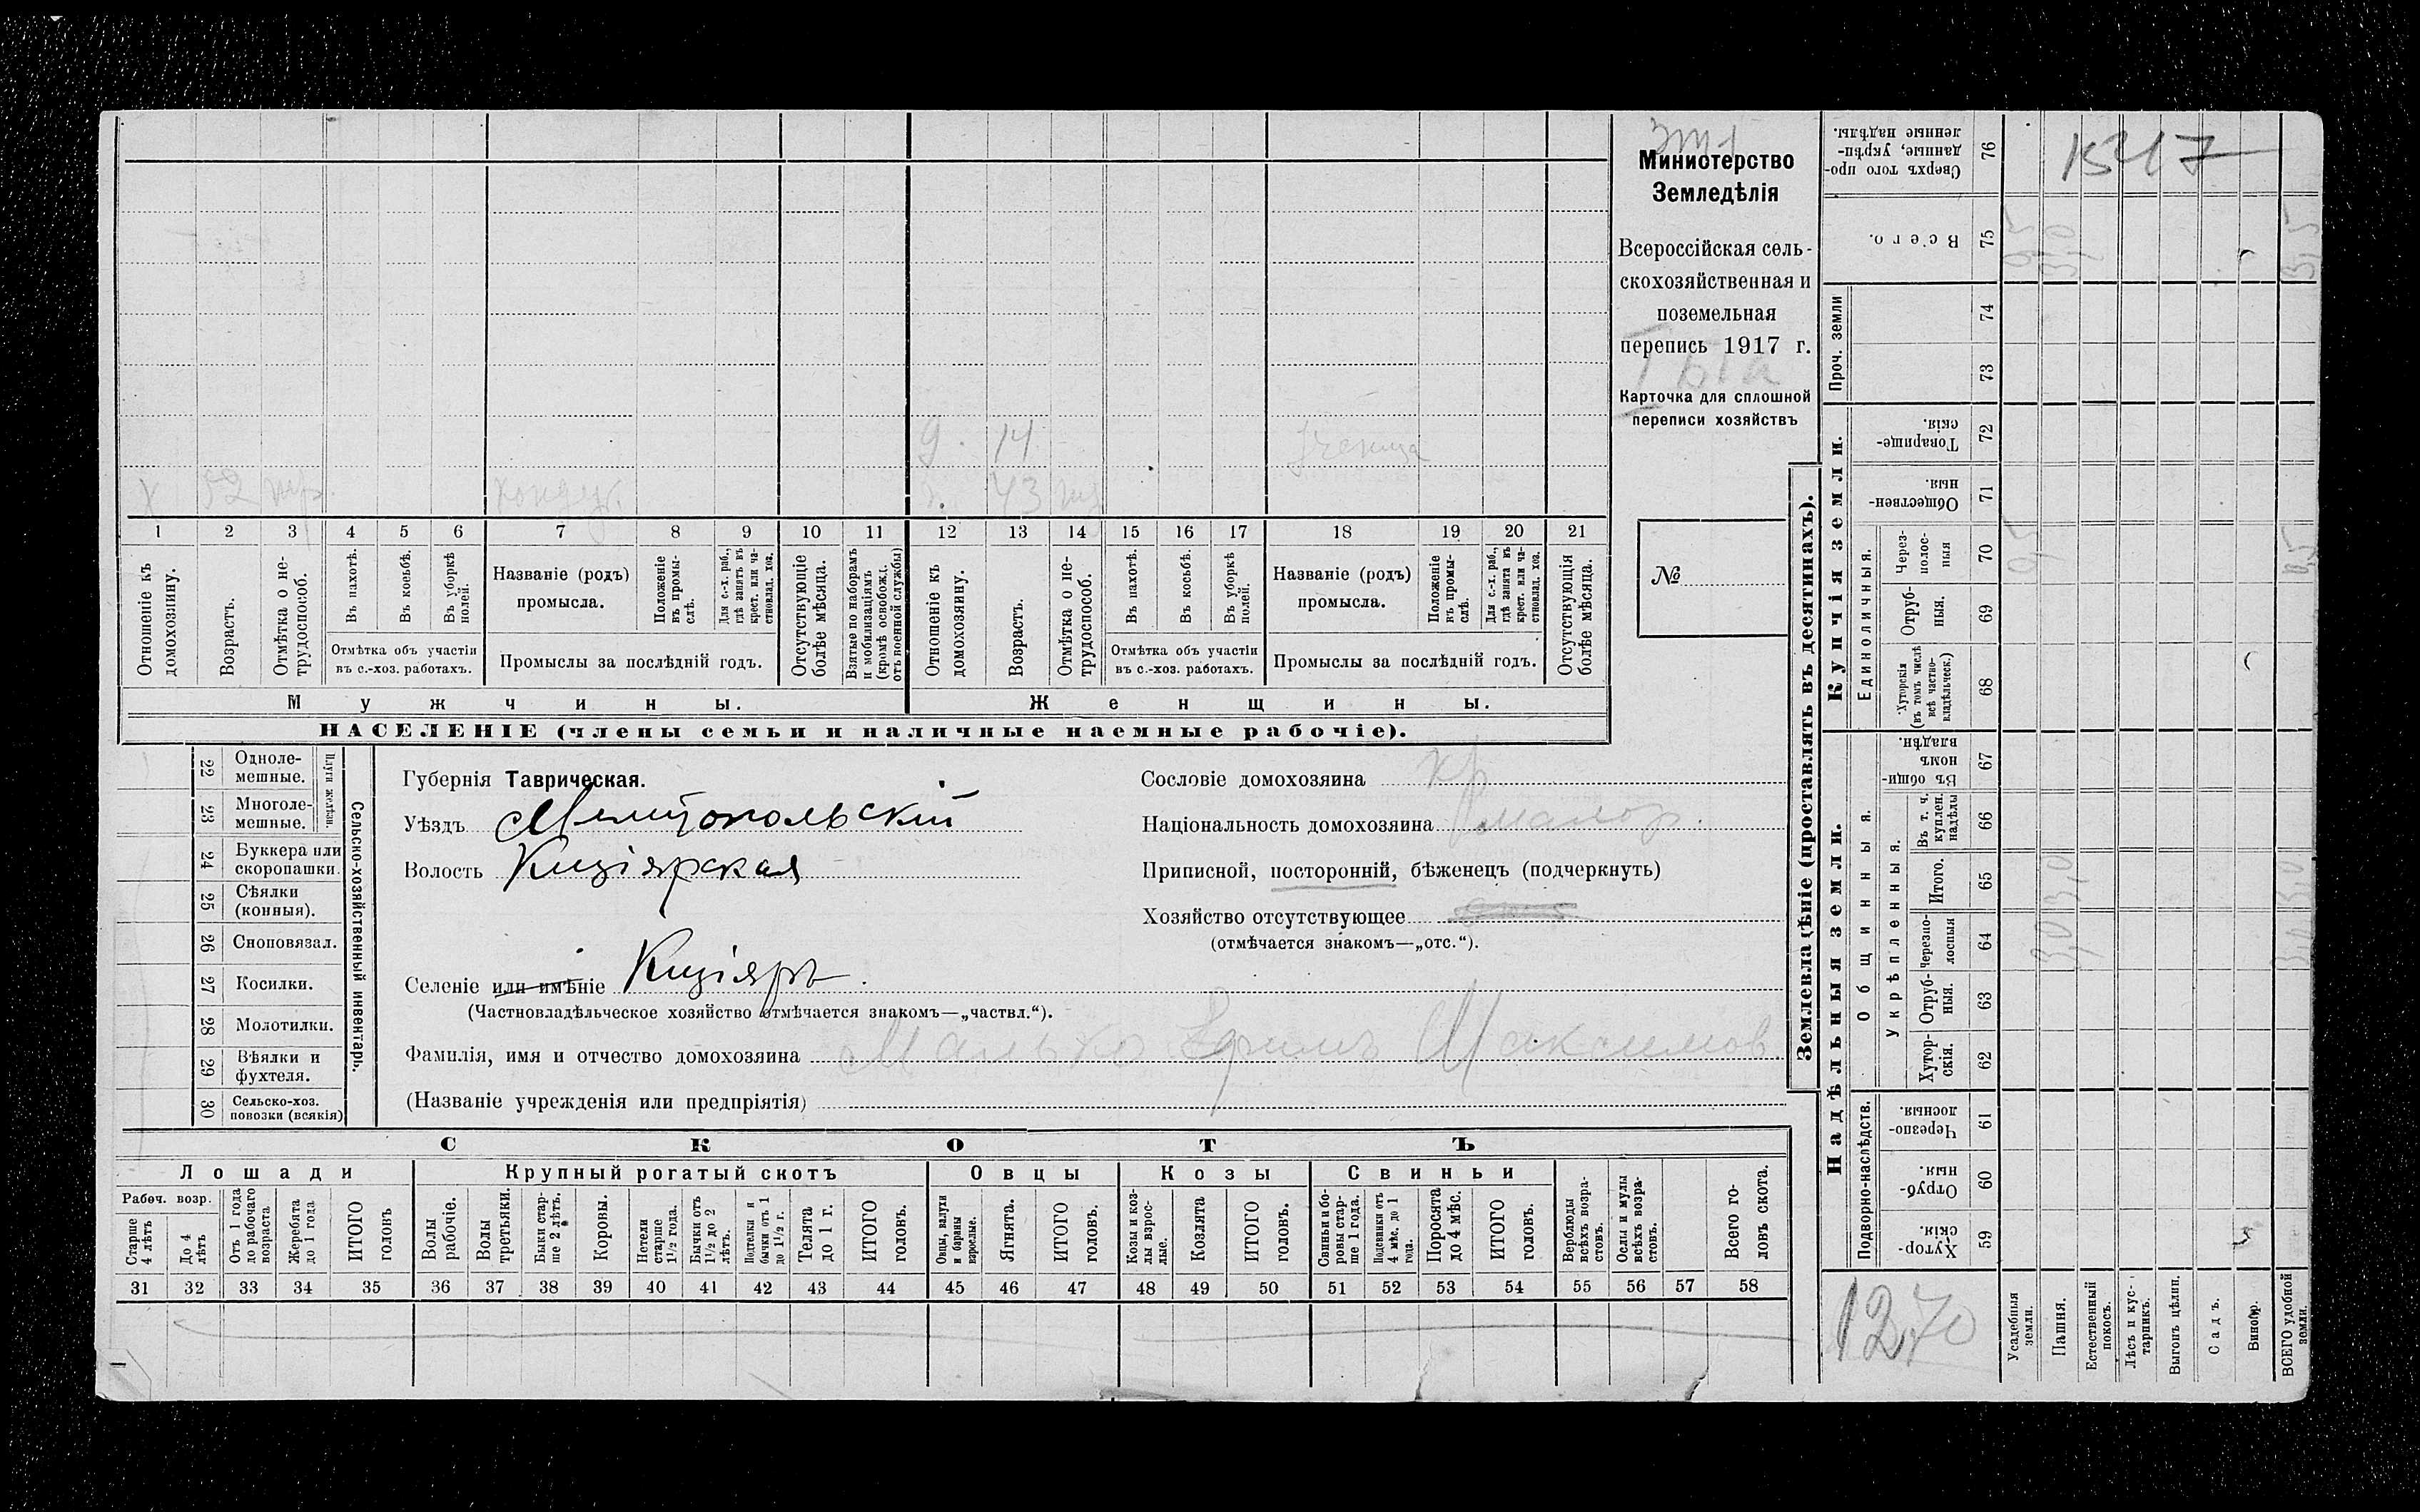 Министерство
Земледѣлія
Всероссійская сель-
скохозяйственная и
поземельная
перепись 1917 г.
Карточка для сплошной
переписи хозяйствъ
№
1517
9. 14 ученица
х 52 кондук. 43
1 2 3 4 5 6 7 8 9 10 11 12 13 14 15 16 17 18 19 20 21
Отношеніе къ домохозяину.
Возрастъ.
Отмѣтка о не-трудоспособ.
Въ пахотѣ.
Въ косьбѣ.
Въ уборкѣ полей.
Отмѣтка объ участіи
въ с.-хоз. работахъ.
Названіе (родъ)
промысла.
Положеніе въ промы-слѣ.
Для с.-х. раб., гдѣ занятъ въ крест. или ча-стновлад. хоз.
Промыслы за послѣдній годъ.
Отсутствующіе болѣе мѣсяца.
Взятые по наборамъ и мобилизаціямъ (кромѣ освобожд. отъ военной службы)
Отношеніе къ домохозяину.
Возрастъ.
Отмѣтка о не-трудоспособ.
Въ пахотѣ.
Въ косьбѣ.
Въ уборкѣ полей.
Отмѣтка объ участіи
въ с.-хоз. работахъ.
Названіе (родъ)
промысла.
Положеніе въ промы-слѣ.
Для с.-х. раб., гдѣ занята въ крест. или ча-стновлад. хоз.
Промыслы за послѣдній годъ.
Отсутствующія болѣе мѣсяца.
Мужчины.
Женщины.
НАСЕЛЕНІЕ (члены семьи и наличные наемные рабочіе).
22 Одноле-мешные.
23 Многоле-мешные.
Плуги желѣзн.
24 Буккера или скоропашки.
25 Сѣялки (конныя).
26 Сноповязал.
27 Косилки.
28 Молотилки.
29 Вѣялки и фухтеля.
30 Сельско-хоз. повозки (всякія)
Сельско-хозяйственный инвентарь.
Губернія Таврическая.
Уѣздъ Мелитопольскій
Волость Кизіярская
Селеніе или имѣніе Кизіяръ.
(Частновладѣльческое хозяйство отмѣчается знакомъ—„частвл.“).
Фамилія, имя и отчество домохозяина Ефимъ Максимов.
(Названіе учрежденія или предпріятія)
Сословіе домохозяина кр
Національность домохозяина малор.
Приписной, посторонній, бѣженецъ (подчеркнуть)
Хозяйство отсутствующее
(отмѣчается знакомъ—„отс.“).
СКОТЪ
Лошади
Крупный рогатый скотъ
Овцы
Козы
Свиньи
Рабоч. возр.
Старше 4 лѣтъ
До 4 лѣтъ
Отъ 1 года до рабочаго возраста
Жеребята до 1 года
ИТОГО головъ
Волы рабочіе.
Волы третьяки.
Быки стар-ше 2 лѣтъ.
Коровы.
Нетели старше 1½ года.
Бычки отъ 1½ до 2 лѣтъ.
Подтелки и бычки отъ 1 до 1½ г.
Телята до 1 г.
ИТОГО головъ.
Овцы, валухи и бараны взрослые.
Ягнята.
ИТОГО головъ.
Козы и коз-лы взрос-лые.
Козлята
ИТОГО головъ.
Свиньи и бо-ровы стар-ше 1 года.
Подсвинки отъ 4 мѣс. до 1 года.
Поросята до 4 мѣс.
ИТОГО головъ.
Верблюды всѣхъ возра-стовъ.
Ослы и мулы всѣхъ возра-стовъ.
Всего го-ловъ скота.
31 32 33 34 35 36 37 38 39 40 41 42 43 44 45 46 47 48 49 50 51 52 53 54 55 56 57 58
Землевладѣніе (проставлять въ десятинахъ).
Надѣльныя земли.
Купчія земли.
Проч. земли
Подворно-наслѣдств.
Общинныя.
Укрѣпленныя.
Единоличныя.
Сверхъ того про-данные, укрѣп-ленные надѣлы. 76
Всего. 75 9,5 3,0 3,5
74
73
Товарище-скія. 72
Обществен-ныя. 71
Через-полос-ныя 70 0,5 0,5
Отруб-ныя. 69
Хуторскія (въ томъ числѣ всѣ частно-владѣльческ.) 68
Въ общи-номъ владѣн. 67
Въ т. ч. куплен. надѣлы 66
Итого. 65 3,0 3,0
Черезпо-лосныя 64 3,0 3,0
Отруб-ныя. 63
Хутор-скія. 62
Черезпо-лосныя. 61
Отруб-ныя. 60
Хутор-скія. 59
1270
Усадебныя земли.
Пашня.
Естественный покосъ.
Лѣсъ и кус-тарникъ.
Выгонъ цѣлин.
Садъ.
Виногр.
ВСЕГО удобной земли.